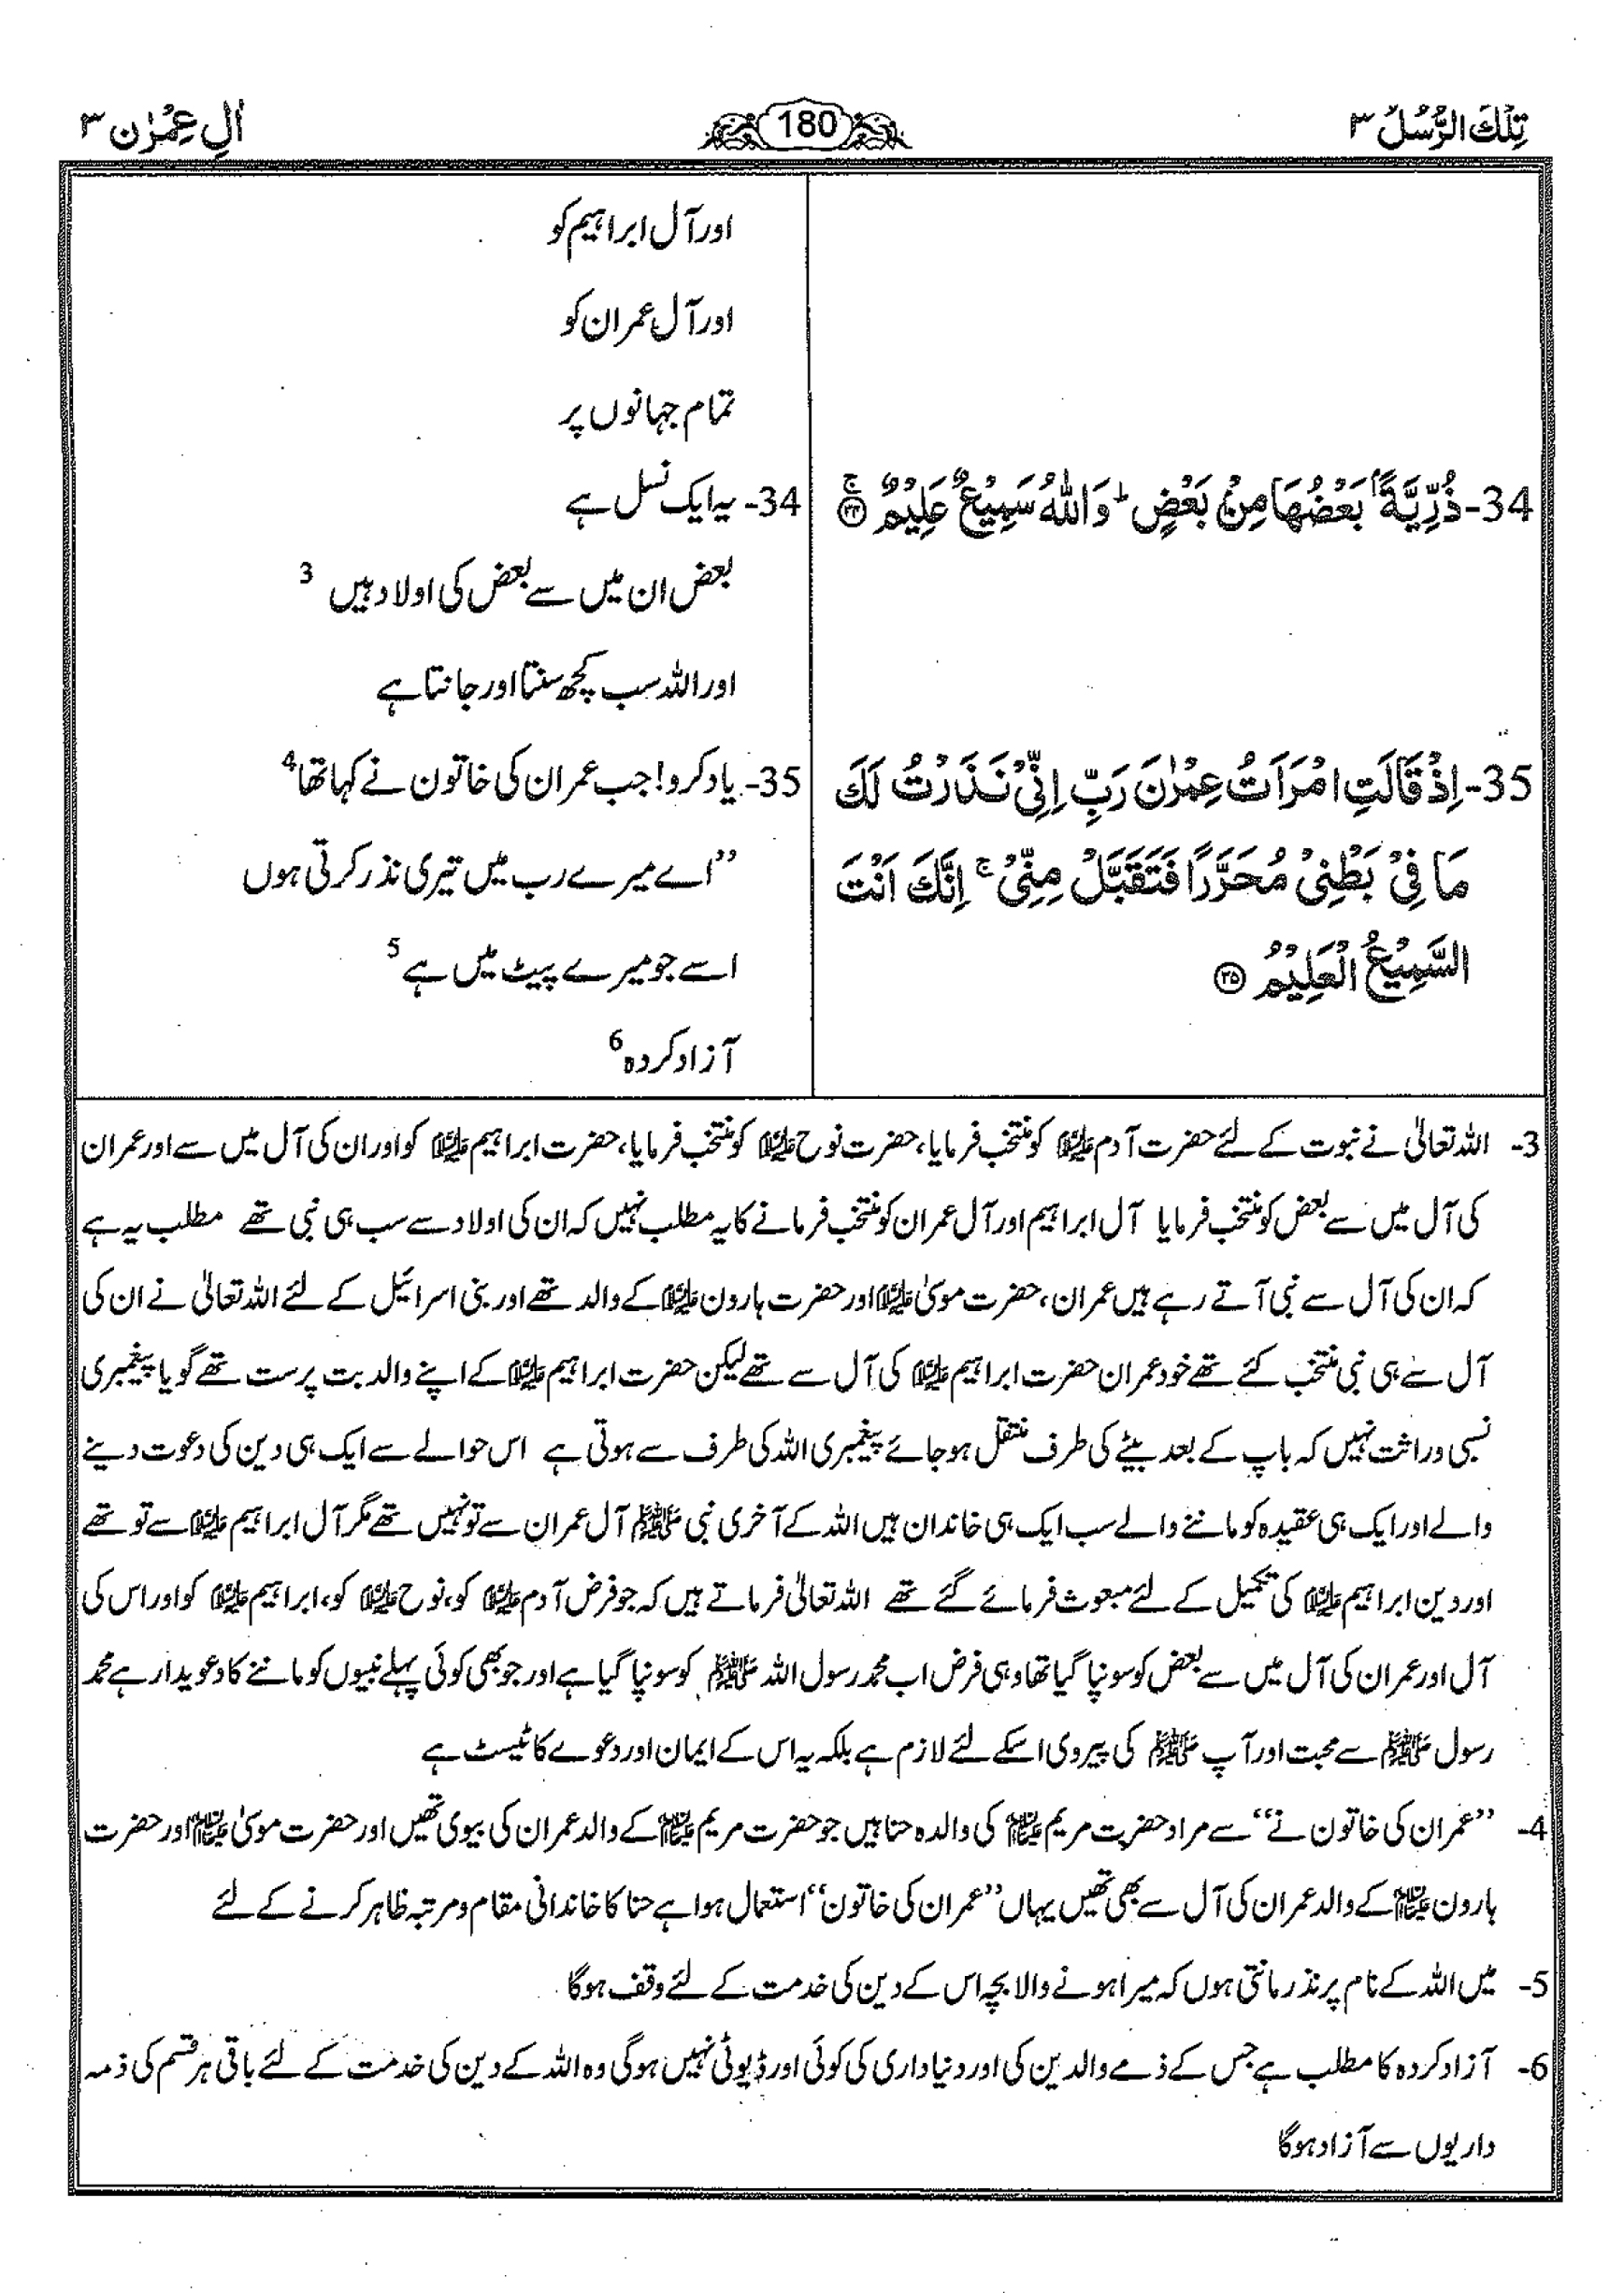 تِلْكَ الرُّسُلُ ٣
180
اٰلِ عِمْرٰن ٣
اور آل ابراہیم کو
اور آل عمران کو
تمام جہانوں پر
34- ذُرِّيَّةًۢ بَعْضُهَا مِنْۢ بَعْضٍ ؕ وَاللّٰهُ سَمِيْعٌ عَلِيْمٌ ۚ ﴿۳۴﴾
34- یہ ایک نسل ہے
بعض ان میں سے بعض کی اولاد ہیں 3
اور اللہ سب کچھ سنتا اور جانتا ہے
35- اِذْ قَالَتِ امْرَاَتُ عِمْرٰنَ رَبِّ اِنِّىْ نَذَرْتُ لَكَ
مَا فِىْ بَطْنِىْ مُحَرَّرًا فَتَقَبَّلْ مِنِّىْ ۚ اِنَّكَ اَنْتَ
السَّمِيْعُ الْعَلِيْمُ ﴿۳۵﴾
35- یاد کرو! جب عمران کی خاتون نے کہا تھا 4
’’اے میرے رب میں تیری نذر کرتی ہوں
اسے جو میرے پیٹ میں ہے 5
آزاد کردہ 6
3- اللہ تعالیٰ نے نبوت کے لئے حضرت آدم علیہ السلام کو منتخب فرمایا، حضرت نوح علیہ السلام کو منتخب فرمایا، حضرت ابراہیم علیہ السلام کو اور ان کی آل میں سے اور عمران
کی آل میں سے بعض کو منتخب فرمایا آل ابراہیم اور آل عمران کو منتخب فرمانے کا یہ مطلب نہیں کہ ان کی اولاد سے سب ہی نبی تھے مطلب یہ ہے
کہ ان کی آل سے نبی آتے رہے ہیں عمران، حضرت موسیٰ علیہ السلام اور حضرت ہارون علیہ السلام کے والد تھے اور بنی اسرائیل کے لئے اللہ تعالیٰ نے ان کی
آل سے ہی نبی منتخب کئے تھے خود عمران حضرت ابراہیم علیہ السلام کی آل سے تھے لیکن حضرت ابراہیم علیہ السلام کے اپنے والد بت پرست تھے گویا پیغمبری
نسبی وراثت نہیں کہ باپ کے بعد بیٹے کی طرف منتقل ہو جائے پیغمبری اللہ کی طرف سے ہوتی ہے اس حوالے سے ایک ہی دین کی دعوت دینے
والے اور ایک ہی عقیدہ کو ماننے والے سب ایک ہی خاندان ہیں اللہ کے آخری نبی ﷺ آل عمران سے تو نہیں تھے مگر آل ابراہیم علیہ السلام سے تو تھے
اور دین ابراہیم علیہ السلام کی تکمیل کے لئے مبعوث فرمائے گئے تھے اللہ تعالیٰ فرماتے ہیں کہ جو فرض آدم علیہ السلام کو، نوح علیہ السلام کو، ابراہیم علیہ السلام کو اور اس کی
آل اور عمران کی آل میں سے بعض کو سونپا گیا تھا وہی فرض اب محمد رسول اللہ ﷺ کو سونپا گیا ہے اور جو بھی کوئی پہلے نبیوں کو ماننے کا دعویدار ہے محمد
رسول ﷺ سے محبت اور آپ ﷺ کی پیروی اسکے لئے لازم ہے بلکہ یہ اس کے ایمان اور دعوے کا ٹیسٹ ہے
4- ’’عمران کی خاتون نے‘‘ سے مراد حضرت مریم ﷺ کی والدہ حنا ہیں جو حضرت مریم ﷺ کے والد عمران کی بیوی تھیں اور حضرت موسیٰ ﷺ اور حضرت
ہارون ﷺ کے والد عمران کی آل سے بھی تھیں یہاں ’’عمران کی خاتون‘‘ استعمال ہوا ہے حنا کا خاندانی مقام و مرتبہ ظاہر کرنے کے لئے
5- میں اللہ کے نام پر نذر مانتی ہوں کہ میرا ہونے والا بچہ اس کے دین کی خدمت کے لئے وقف ہوگا
6- آزاد کردہ کا مطلب ہے جس کے ذمے والدین کی اور دنیا داری کی کوئی اور ڈیوٹی نہیں ہوگی وہ اللہ کے دین کی خدمت کے لئے باقی ہر قسم کی ذمہ
داریوں سے آزاد ہوگا